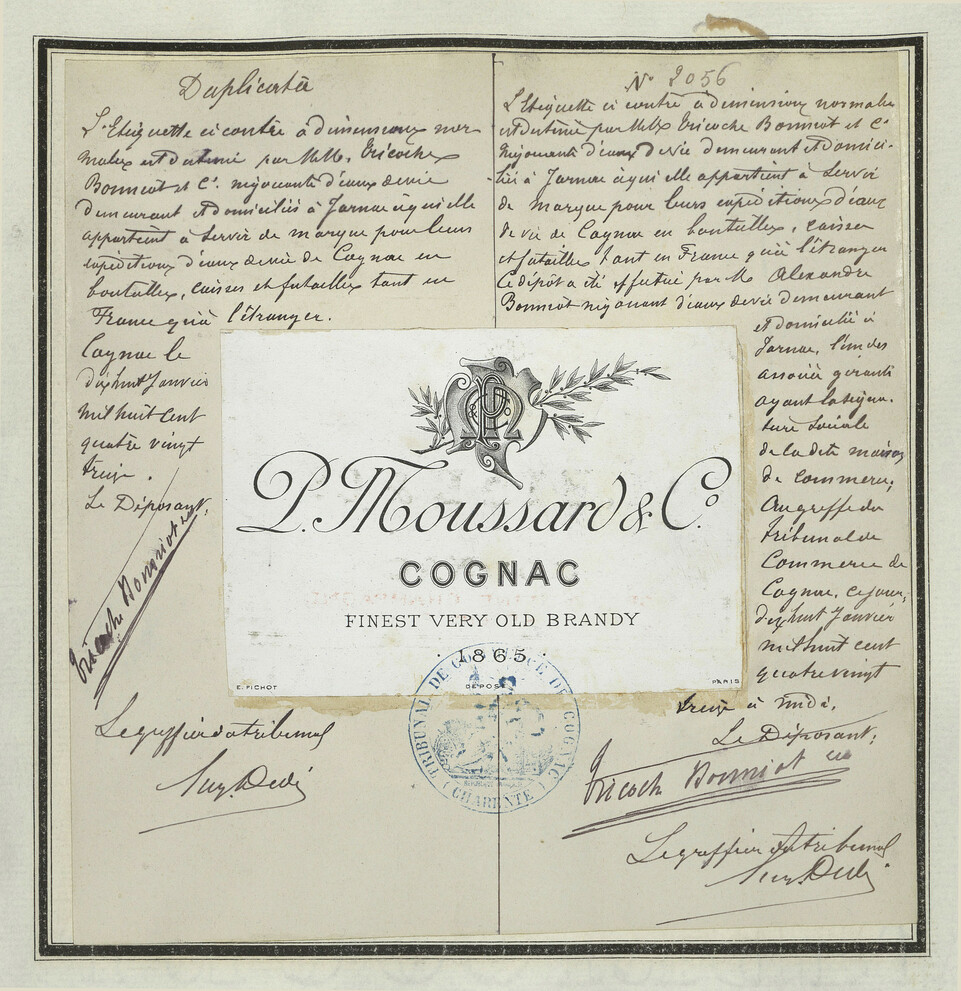 Duplicata
L'Etiquette ci contre à dimensions nor
males est destiné par M.M. Tricoche
Bonniot et Cie. négociants d'eaux de vie
demeurant et domiciliés à Jarnac à qui elle
appartient à servir de marque pour leurs
expéditions d'eaux de vie de Cognac en
bouteilles, caisses et futailles tant en
France qu'à l'étranger.
Cognac le
dix huit Janvier
mil huit cent
quatre vingt
treize.
Le Déposant,
Tricoche Bonniot
Le greffier du tribunal
No 2056
L'Etiquette ci contre à dimensions normales
est destiné par M.M. Tricoche Bonniot et Cie
négociants d'eaux de vie demeurant et domici-
liés à Jarnac à qui elle appartient à servir
de marque pour leurs expéditions d'eaux
de vie de Cognac en bouteilles, caisses
et futailles tant en France qu'à l'étranger
Ce dépôt a été effectué par M. Alexandre
Bonniot négociant d'eaux de vie demeurant
et domicilié à
Jarnac, l'un des
associés gérants
ayant la signa-
ture sociale
de la dite maison
de commerce,
Au greffe du
tribunal de
Commerce de
Cognac, ce jour,
dix huit Janvier
mil huit cent
quatre vingt
treize à midi.
Le Déposant,
Tricoche Bonniot
Le greffier du tribunal
P. Moussard & Co.
COGNAC
FINEST VERY OLD BRANDY
1865
E. PICHOT
DÉPOSÉ
PARIS
TRIBUNAL DE COMMERCE DE COGNAC
(CHARENTE)